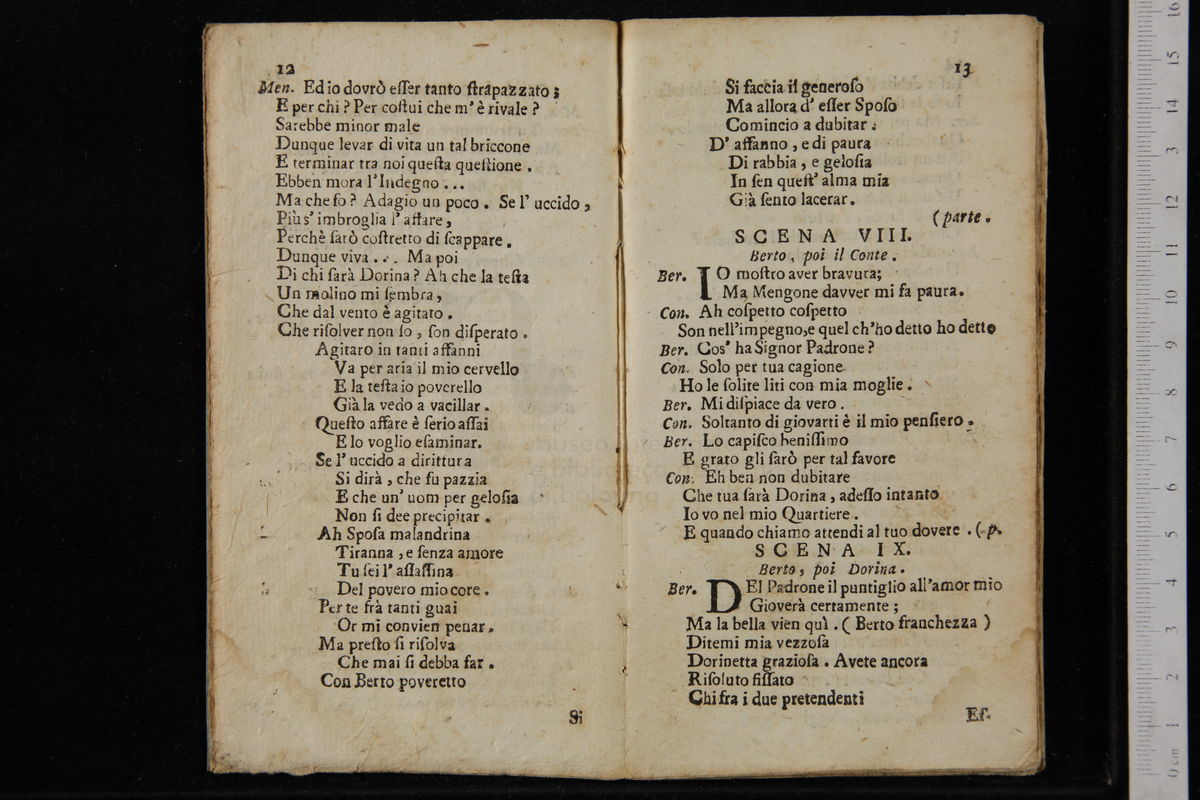 12
Men. Ed io dovrò eſſer tanto ſtrapazzato;
E per chi? Per coſtui che m' è rivale?
Sarebbe minor male
Dunque levar di vita un tal briccone
E terminar tra noi queſta queſtione.
Ebben mora l'Indegno...
Ma che fo? Adagio un poco. Se l' uccido,
Più s' imbroglia l' affare,
Perchè ſarò coſtretto di ſcappare.
Dunque viva... Ma poi
Di chi ſarà Dorina? Ah che la teſta
Un molino mi ſembra,
Che dal vento è agitato.
Che riſolver non ſo, ſon diſperato.
Agitato in tanti affanni
Va per aria il mio cervello
E la teſta io poverello
Già la vedo a vacillar.
Queſto affare è ſerio aſſai
E lo voglio eſaminar.
Se l' uccido a dirittura
Si dirà, che fu pazzia
E che un' uom per geloſia
Non ſi dee precipitar.
Ah Spoſa malandrina
Tiranna, e ſenza amore
Tu ſei l' aſſaſſina
Del povero mio core.
Per te frà tanti guai
Or mi convien penar.
Ma preſto ſi riſolva
Che mai ſi debba far.
Con Berto poveretto
Si
13
Si faccia il generoſo
Ma allora d' eſſer Spoſo
Comincio a dubitar:
D' affanno, e di paura
Di rabbia, e geloſia
In ſen queſt' alma mia
Già ſento lacerar.
(parte.
SCENA VIII.
Berto, poi il Conte.
Ber. IO moſtro aver bravura;
Ma Mengone davver mi fa paura.
Con. Ah coſpetto coſpetto
Son nell'impegno, e quel ch'ho detto ho detto
Ber. Cos' ha Signor Padrone?
Con. Solo per tua cagione
Ho le ſolite liti con mia moglie.
Ber. Mi diſpiace da vero.
Con. Soltanto di giovarti è il mio penſiero.
Ber. Lo capiſco beniſſimo
E grato gli ſarò per tal favore
Con. Eh ben non dubitare
Che tua ſarà Dorina, adeſſo intanto
Io vo nel mio Quartiere.
E quando chiamo attendi al tuo dovere. (p.
SCENA IX.
Berto, poi Dorina.
Ber. DEl Padrone il puntiglio all'amor mio
Gioverà certamente;
Ma la bella vien quì. (Berto franchezza)
Ditemi mia vezzoſa
Dorinetta grazioſa. Avete ancora
Riſoluto fiſſato
Chi fra i due pretendenti
Eſ-